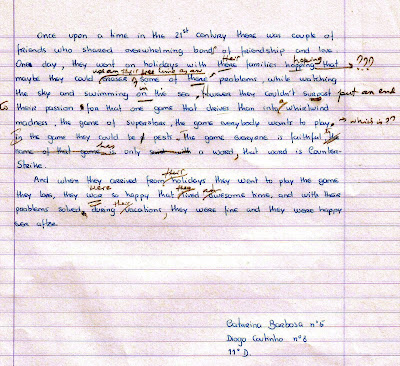 Once upon a time in the 21st century there was couple of
friends who shared overwhelming bonds of friendship and love.
their hoping
One day, they went on holidays with there families hopping that → ???
maybe they could some of there problems, while watching
the sky and swimming on the sea. However they couldn't suspost put an end
to their passion for that one game that drives than into whirlwind
madness, the game of superstars, the game everybody wants to play, → which is ??
In the game they could be pests. The game everyone is faithful, the
has
name of that game is only a word, that word is Counter-
Strike.
their
And when they arrived from holidays, they went to play the game
were they an
they love, they was so happy that lived awesome time, and with there
their
problems solved, during vacations, they were fine and they were happy
ever after.
Catarina Barbosa nº6
Diogo Coutinho nº8
11º D.